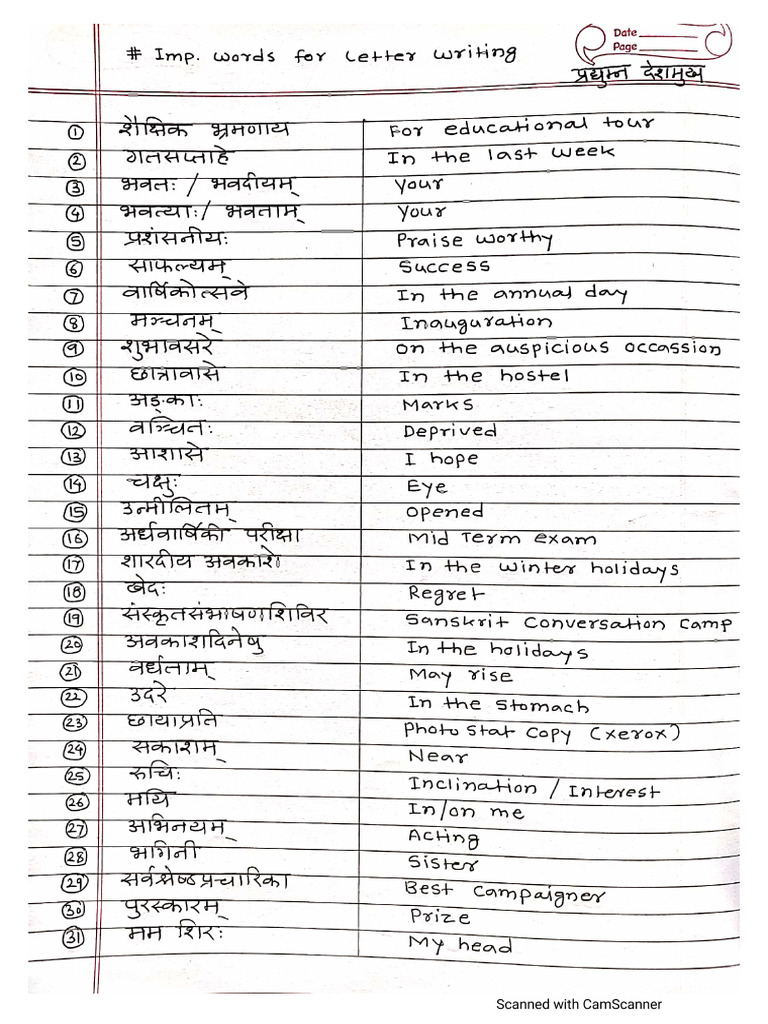 # Imp. words for Letter writing
Date
Page
प्रद्युम्न देशमुख
① शैक्षिक भ्रमणाय For educational tour
② गतसप्ताहे In the last week
③ भवतः / भवदीयम् Your
④ भवत्याः / भवताम् Your
⑤ प्रशंसनीयः Praise worthy
⑥ साफल्यम् Success
⑦ वार्षिकोत्सवे In the annual day
⑧ मञ्चनम् Inauguration
⑨ शुभावसरे on the auspicious occassion
⑩ छात्रावासे In the hostel
⑪ अङ्काः Marks
⑫ वञ्चितः Deprived
⑬ आशासे I hope
⑭ चक्षुः Eye
⑮ उन्मीलितम् Opened
⑯ अर्धवार्षिकी परीक्षा Mid Term exam
⑰ शारदीय अवकाशे In the winter holidays
⑱ खेदः Regret
⑲ संस्कृतसंभाषणशिविर Sanskrit Conversation Camp
⑳ अवकाशदिनेषु In the holidays
㉑ वर्धताम् May rise
㉒ उदरे In the stomach
㉓ छायाप्रति Photo stat copy (xerox)
㉔ सकाशम् Near
㉕ रुचिः Inclination / Interest
㉖ मयि In/on me
㉗ अभिनयम् Acting
㉘ भगिनी Sister
㉙ सर्वश्रेष्ठप्रचारिका Best campaigner
㉚ पुरस्कारम् Prize
㉛ मम शिरः My head
Scanned with CamScanner